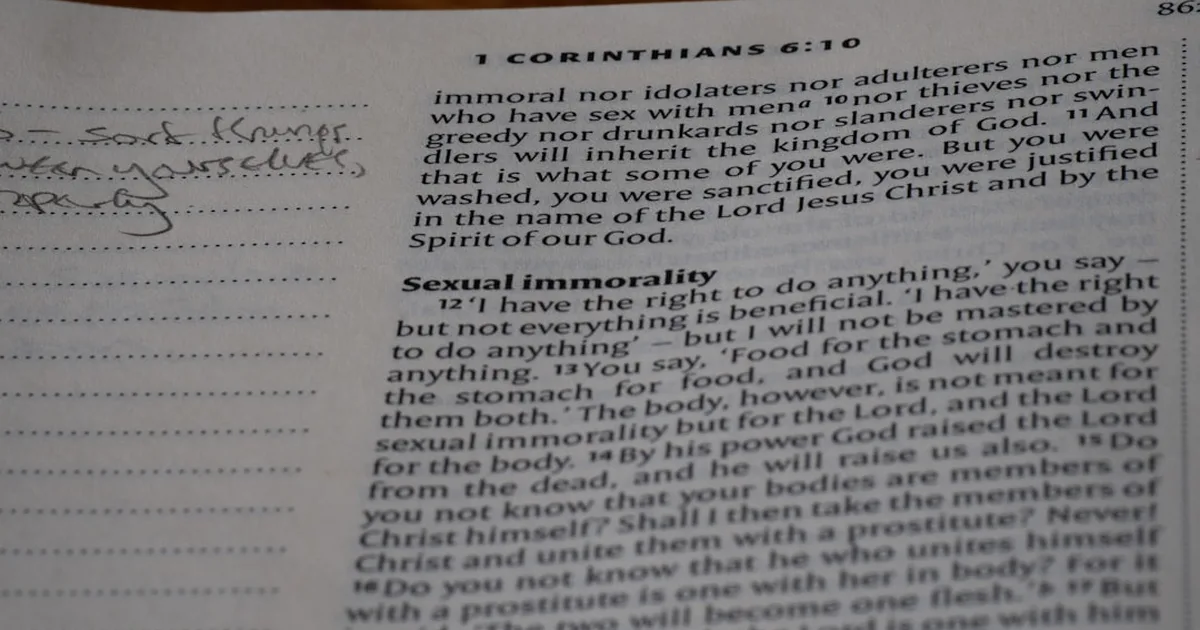 86
1 CORINTHIANS 6:10
– sort things
yourselves,
immoral nor idolaters nor adulterers nor men
who have sex with menᵃ ¹⁰nor thieves nor the
greedy nor drunkards nor slanderers nor swin-
dlers will inherit the kingdom of God. ¹¹And
that is what some of you were. But you were
washed, you were sanctified, you were justified
in the name of the Lord Jesus Christ and by the
Spirit of our God.
Sexual immorality
¹²‘I have the right to do anything,’ you say –
but not everything is beneficial. ‘I have the right
to do anything’ – but I will not be mastered by
anything. ¹³You say, ‘Food for the stomach and
the stomach for food, and God will destroy
them both.’ The body, however, is not meant for
sexual immorality but for the Lord, and the Lord
for the body. ¹⁴By his power God raised the Lord
from the dead, and he will raise us also. ¹⁵Do
you not know that your bodies are members of
Christ himself? Shall I then take the members of
Christ and unite them with a prostitute? Never!
¹⁶Do you not know that he who unites himself
with a prostitute is one with her in body? For it
The two will become one flesh.’ᵇ ¹⁷But
Lord is one with him